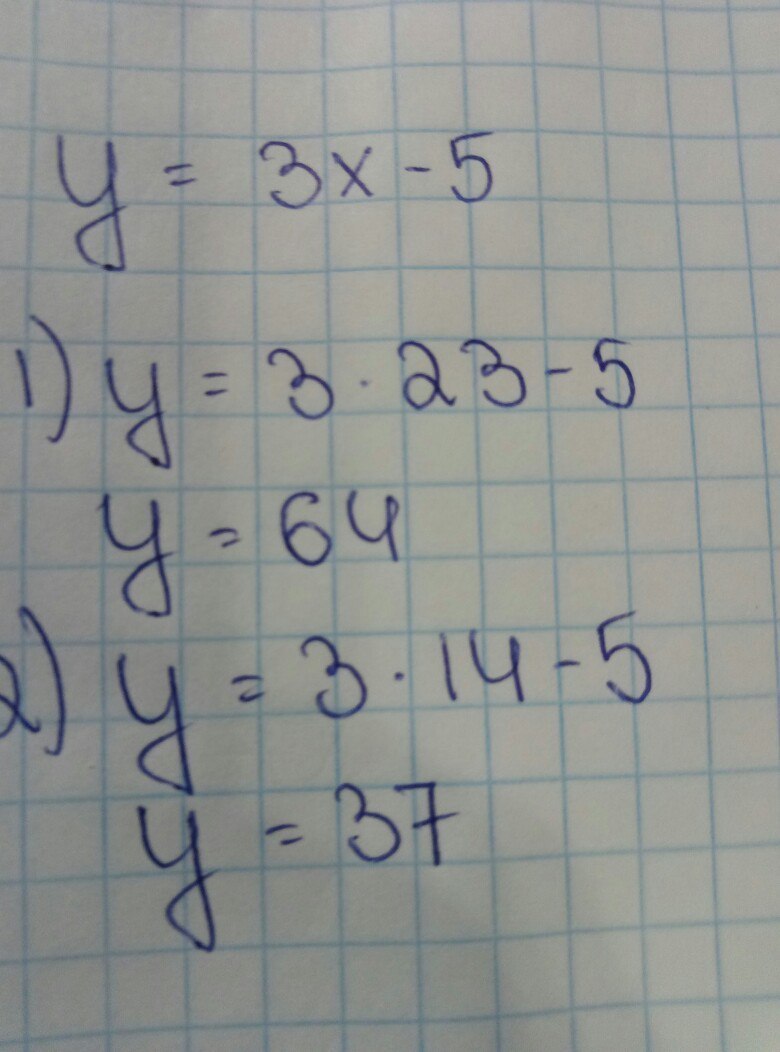 y = 3x - 5
1) y = 3 · 23 - 5
y = 64
2) y = 3 · 14 - 5
y = 37